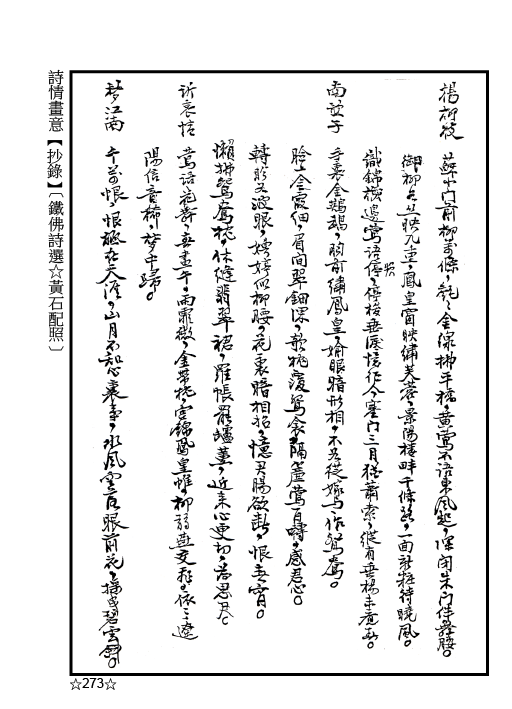 楊柳枝　蘇小門前柳萬條，毿毿金線拂平橋，黃鶯不語東風起，深閉朱門伴舞腰。
御柳如絲映九重，鳳皇窗映繡芙蓉，景陽樓畔千條路，一面新粧待曉風。
織錦機邊鶯語頻，停梭垂淚憶征人，塞門三月猶蕭索，縱有垂楊未覺春。
南歌子　手裏金鸚鵡，胸前繡鳳皇，偷眼暗形相，不如從嫁與，作鴛鴦。
臉上金霞細，眉間翠鈿深，欹枕覆鴛衾，隔簾鶯百囀，感君心。
轉盼如波眼，娉婷似柳腰，花裏暗相招，憶君腸欲斷，恨春宵。
懶拂鴛鴦枕，休縫翡翠裙，羅帳罷爐薰，近來心更切，為思君。
訴衷情　鶯語花舞春晝午，雨霏微，金帶枕，宮錦，鳳皇帷，柳弱燕交飛，依依，遼
陽信音稀，夢中歸。
夢江南　千萬恨，恨極在天涯，山月不知心裏事，水風空落眼前花，搖曳碧雲斜。
詩情畫意【抄錄】〔鐵佛詩選☆黃石配照〕
☆273☆